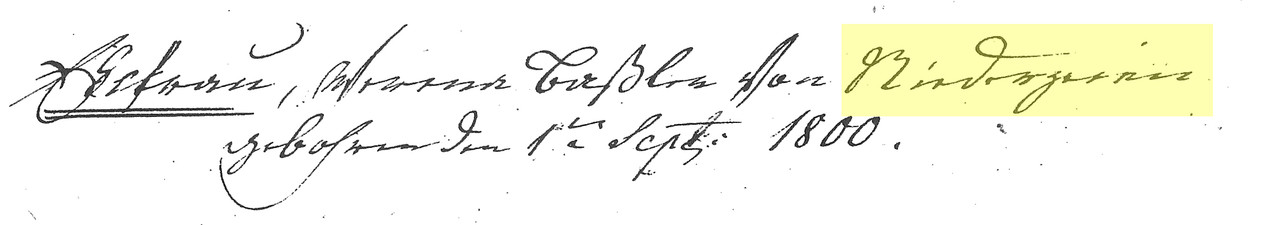 Ehefrau, Verena Baßler von Niederzeien
gebohren den 1ten Sept: 1800.